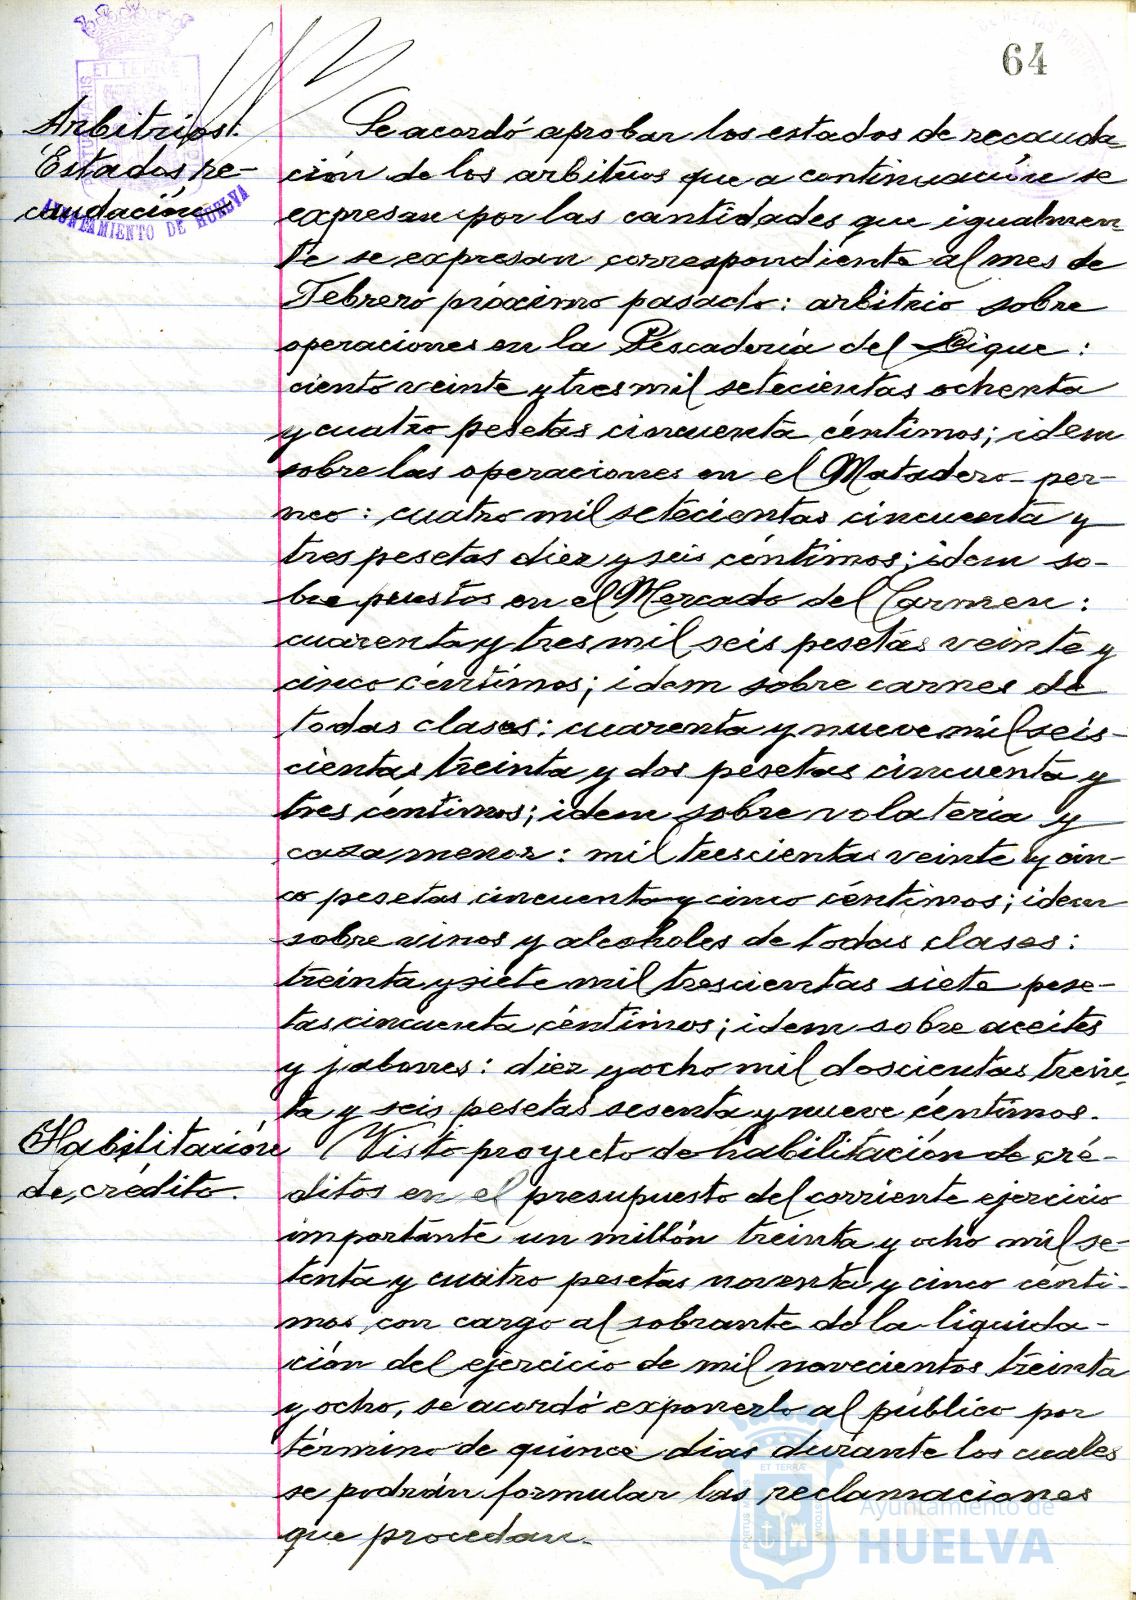 64
Arbitrios.
Estados re-
caudación
AYUNTAMIENTO DE HUELVA
Se acordó aprobar los estados de recauda-
ción de los arbitrios que a continuación se
expresan por las cantidades que igualmen-
te se expresan correspondiente al mes de
Febrero próximo pasado: arbitrio sobre
operaciones en la Pescadería del Dique:
ciento veinte y tres mil setecientas ochenta
y cuatro pesetas cincuenta céntimos; idem
sobre las operaciones en el Matadero-per-
neo: cuatro mil setecientas cincuenta y
tres pesetas diez y seis céntimos; idem so-
bre puestos en el Mercado del Carmen:
cuarenta y tres mil seis pesetas veinte y
cinco céntimos; idem sobre carnes de
todas clases: cuarenta y nueve mil seis-
cientas treinta y dos pesetas cincuenta y
tres céntimos; idem sobre volatería y
caza menor: mil trescientas veinte y cin-
co pesetas cincuenta y cinco céntimos; idem
sobre vinos y alcoholes de todas clases:
treinta y siete mil trescientas siete pese-
tas cincuenta céntimos; idem sobre aceites
y jabones: diez y ocho mil doscientas trein-
ta y seis pesetas sesenta y nueve céntimos.
Habilitación
de crédito.
Visto proyecto de habilitación de cré-
ditos en el presupuesto del corriente ejercicio
importante un millón treinta y ocho mil se-
tenta y cuatro pesetas noventa y cinco cénti-
mos, con cargo al sobrante de la liquida-
ción del ejercicio de mil novecientos treinta
y ocho, se acordó exponerlo al público por
término de quince dias durante los cuales
se podrán formular las reclamaciones
que procedan.
Ayuntamiento de
HUELVA